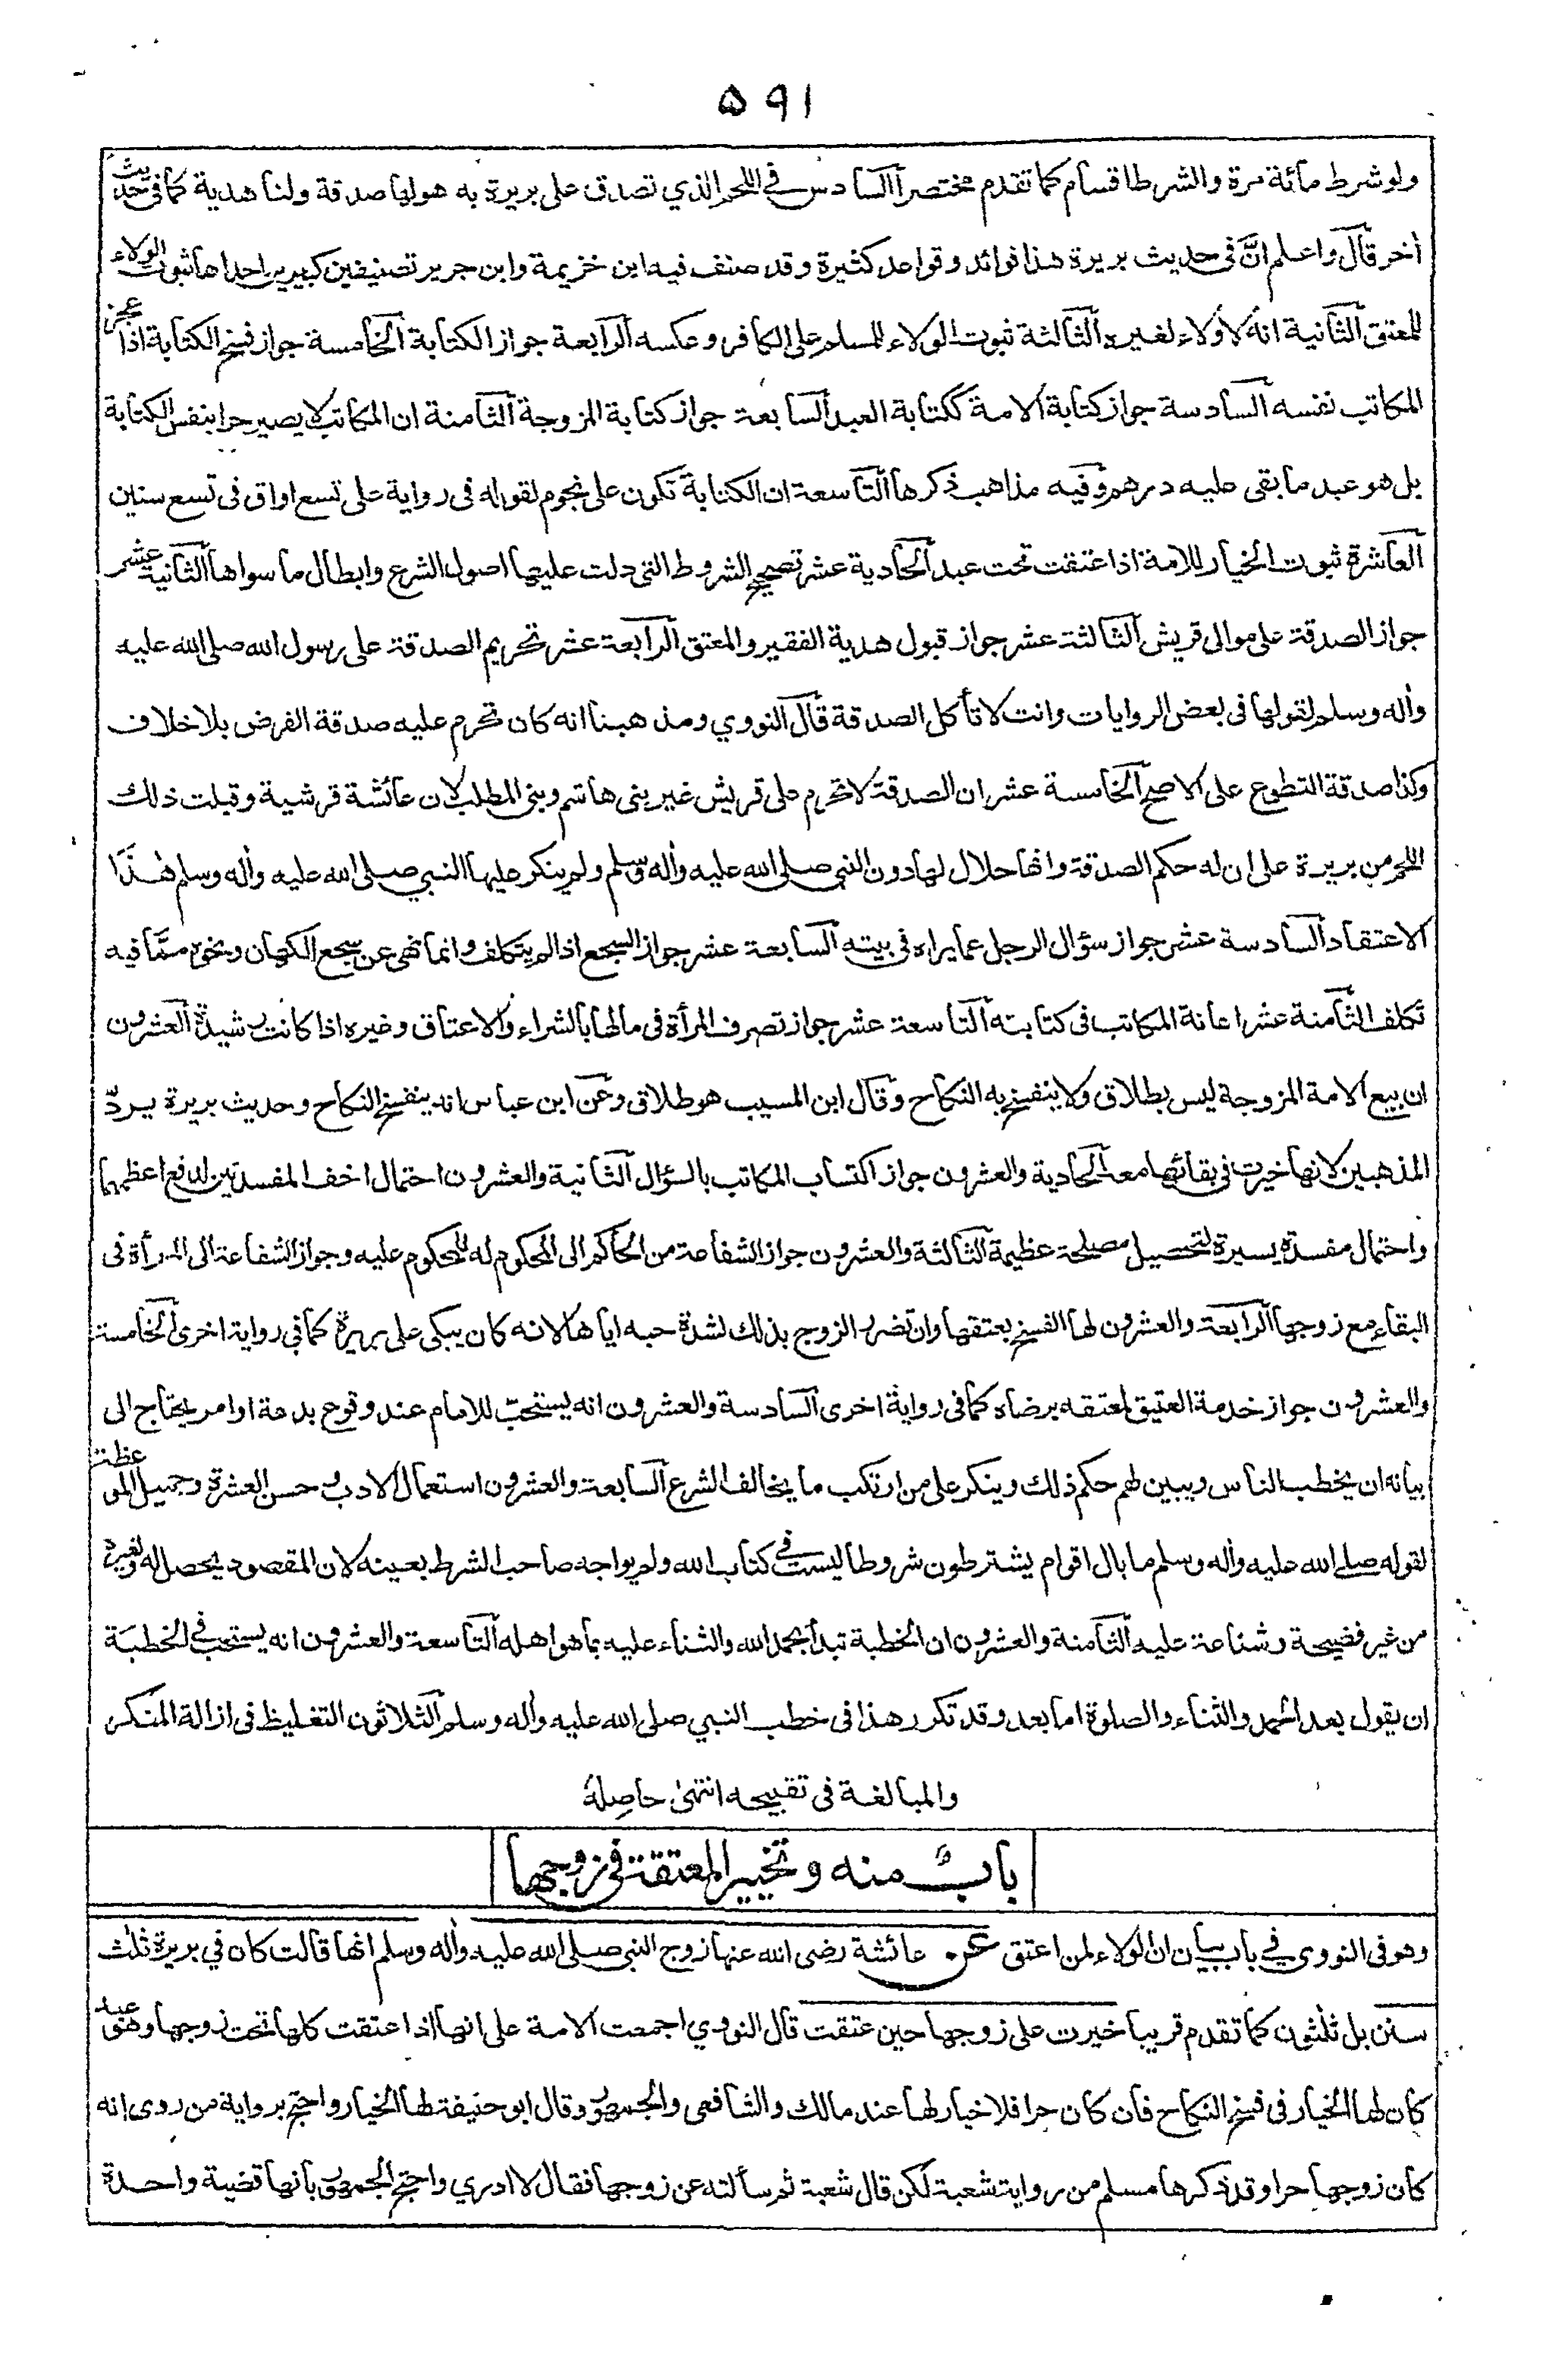 ۵۹۱
ولو شرط مائة مرة والشرط اقسام كما تقدم مختصرا السادس في اللحم الذي تصدق على بريرة به هو لها صدقة ولنا هدية كما في حديث
أخر قال واعلم انّ في حديث بريرة هذا فوائد وقواعد كثيرة وقد صنف فيه ابن خزيمة وابن جرير تصنيفين كبيرين احداها ثبوت الولاء
للمعتق الثانية انه لا ولاء لغيره الثالثة ثبوت الولاء للمسلم على الكافر وعكسه الرابعة جواز الكتابة الخامسة جواز فسخ الكتابة اذا عجز
المكاتب نفسه السادسة جواز كتابة الامة ككتابة العبد السابعة جواز كتابة المزوجة الثامنة ان المكاتب لا يصير حرا بنفس الكتابة
بل هو عبد ما بقى عليه درهم وفيه مذاهب ذكرها التاسعة ان الكتابة تكون على نجوم لقوله فى رواية على تسع اواق فى تسع سنين
العاشرة ثبوت الخيار للامة اذا عتقت تحت عبد الحادية عشر تصحيح الشروط التى دلت عليها اصول الشرع وابطال ما سواها الثانية عشر
جواز الصدقة على موالى قريش الثالثة عشر جواز قبول هدية الفقير والمعتق الرابعة عشر تحريم الصدقة على رسول الله صلى الله عليه
وأله وسلم لقولها فى بعض الروايات وانت لا تأكل الصدقة قال النووي ومذهبنا انه كان تحرم عليه صدقة الفرض بلا خلاف
وكذا صدقة التطوع على الاصح الخامسة عشر ان الصدقة لا تحرم على قريش غير بنى هاشم وبنى المطلب لان عائشة قرشية وقبلت ذلك
اللحم من بريرة على ان له حكم الصدقة وانها حلال لها دون النبي صلى الله عليه وأله وسلم ولم ينكر عليها النبي صلى الله عليه وأله وسلم هذا
الاعتقاد السادسة عشر جواز سؤال الرجل عما يراه فى بيته السابعة عشر جواز السجع اذا لم يتكلف وانما نهى عن سجع الكهان ونحوه ممّا فيه
تكلف الثامنة عشر اعانة المكاتب فى كتابته التاسعة عشر جواز تصرف المرأة فى مالها بالشراء والاعتاق وغيره اذا كانت رشيدة العشرون
ان بيع الامة المزوجة ليس بطلاق ولا ينفسخ به النكاح وقال ابن المسيب هو طلاق وعن ابن عباس انه ينفسخ النكاح وحديث بريرة يردّ
المذهبين لانها خيرت فى بقائها معه الحادية والعشرون جواز اكتساب المكاتب بالسؤال الثانية والعشرون احتمال اخف المفسدتين لدفع اعظمهما
واحتمال مفسدة يسيرة لتحصيل مصلحة عظيمة الثالثة والعشرون جواز الشفاعة من الحاكم الى المحكوم له للمحكوم عليه وجواز الشفاعة الى المرأة فى
البقاء مع زوجها الرابعة والعشرون لها الفسخ بعتقها وان تضرر الزوج بذلك لشدة حبه اياها لانه كان يبكى على بريرة كما في رواية اخرى الخامسة
والعشرون جواز خدمة العتيق لمعتقه برضاه كما فى رواية اخرى السادسة والعشرون انه يستحبّ للامام عند وقوع بدعة او امر يحتاج الى
بيانه ان يخطب الناس ويبين لهم حكم ذلك وينكر على من ارتكب ما يخالف الشرع السابعة والعشرون استعمال الادب وحسن العشرة وجميل الموعظة
لقوله صلى الله عليه وأله وسلم ما بال اقوام يشترطون شروطا ليست في كتاب الله ولم يواجه صاحب الشرط بعينه لان المقصود يحصل له ولغيره
من غير فضيحة وشناعة عليه الثامنة والعشرون ان الخطبة تبدأ بحمد الله والثناء عليه بما هو اهله التاسعة والعشرون انه يستحب في الخطبة
ان يقول بعد الحمد والثناء والصلوة اما بعد وقد تكرر هذا فى خطب النبي صلى الله عليه وأله وسلم الثلاثون التغليظ فى ازالة المنكر
والمبالغة فى تقبيحه انتهى حاصله
بابٌ منه وتخيير المعتقة فى زوجها
وهو فى النووي في باب بيان ان الولاء لمن اعتق عن عائشة رضى الله عنها زوج النبي صلى الله عليه وأله وسلم انها قالت كان في بريرة ثلث
سنن بل ثلثون كما تقدم قريبا خيرت على زوجها حين عتقت قال النووي اجمعت الامة على انها اذا عتقت كلها تحت زوجها وهو عبد
كان لها الخيار فى فسخ النكاح فان كان حرا فلا خيار لها عند مالك والشافعى والجمهور وقال ابو حنيفة لها الخيار واحتج برواية من روى انه
كان زوجها حرا وقد ذكرها مسلم من رواية شعبة لكن قال شعبة ثم سألته عن زوجها فقال لا ادري واحتج الجمهور بانها قضية واحدة